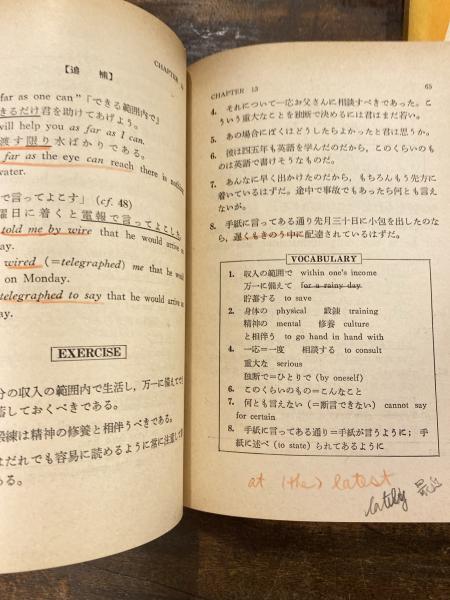 【追補】
CHAPTER
far as one can”「できる範囲内で」
きるだけ君を助けてあげよう。
will help you as far as I can.
渡す限り水ばかりである。
far as the eye can reach there is nothing
water.
で言ってよこす」(cf. 48)
曜日に着くと電報で言ってよこした
told me by wire that he would arrive
ay.
wired (=telegraphed) me that he would
on Monday.
telegraphed to say that he would arrive
ay.
EXERCISE
分の収入の範囲内で生活し，万一に備えて
蓄しておくべきである。
鍛練は精神の修養と相伴うべきである。
はだれでも容易に読めるように常に注意して
ある。
CHAPTER 13
65
4. それについて一応お父さんに相談すべきであった。こ
ういう重大なことを独断で決めるには君はまだ若い。
5. あの場合にぼくはどうしたらよかったと君は思うか。
6. 彼は四五年も英語を学んだのだから，このくらいのも
のは英語で書けそうなものだ。
7. あんなに早く出かけたのだから，もちろんもう先方に
着いているはずだ。途中で事故でもあったら何とも言え
ないが。
8. 手紙に言ってある通り先月三十日に小包を出したのな
ら，遅くもきのう中に配達されているはずだ。
VOCABULARY
1. 収入の範囲で within one's income
万一に備えて for a rainy day
貯蓄する to save
2. 身体の physical 鍛錬 training
精神の mental 修養 culture
と相伴う to go hand in hand with
4. 一応=一度 相談する to consult
重大な serious
独断で=ひとりで (by oneself)
6. このくらいのもの=こんなこと
7. 何とも言えない (=断言できない) cannot say
for certain
8. 手紙に言ってある通り=手紙が言うように; 手
紙に述べ (to state) られてあるように
at (the) latest
lately